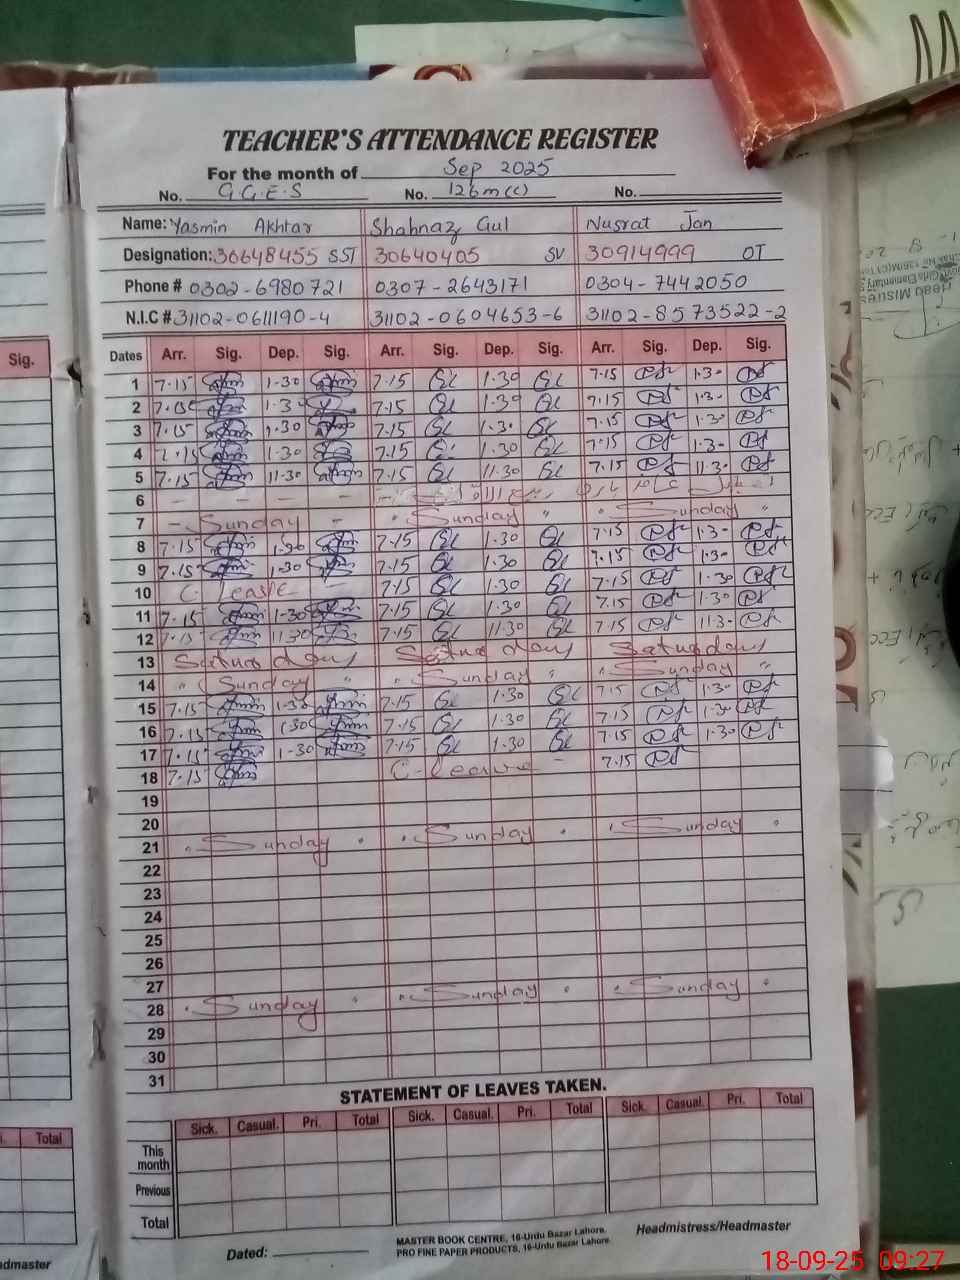 TEACHER'S ATTENDANCE REGISTER
For the month of Sep 2025
No. G.G.E.S No. 126m(c) No.
Name: Yasmin Akhtar Shahnaz Gul Nusrat Jan
Designation: 36648455 SST 30640405 SV 30914999 OT
Phone # 0302-6980721 0307-2643171 0304-7442050
N.I.C # 31102-0611190-4 31102-0604653-6 31102-8573522-2
Sig. Dates Arr. Sig. Dep. Sig. Arr. Sig. Dep. Sig. Arr. Sig. Dep. Sig.
1 7.15 1.30 7.15 1.30 7.15 1.30
2 7.15 1.30 7.15 1.30 7.15 1.30
3 7.15 1.30 7.15 1.30 7.15 1.30
4 7.15 1.30 7.15 1.30 7.15 1.30
5 7.15 11.30 7.15 11.30 7.15 11.30
6 - - - -
7 - Sunday - " Sunday " " Sunday "
8 7.15 1.30 7.15 1.30 7.15 1.30
9 7.15 1.30 7.15 1.30 7.15 1.30
10 C. Leave - 7.15 1.30 7.15 1.30
11 7.15 1.30 7.15 1.30 7.15 1.30
12 7.15 11.30 7.15 11.30 7.15 11.30
13
14 " Sunday " " Sunday " " Sunday "
15 7.15 1.30 7.15 1.30 7.15 1.30
16 7.15 1.30 7.15 1.30 7.15 1.30
17 7.15 1.30 7.15 1.30 7.15 1.30
18 7.15 C-leave - 7.15
19
20
21 " Sunday " " Sunday " " Sunday "
22
23
24
25
26
27
28 " Sunday " " Sunday " " Sunday "
29
30
31
STATEMENT OF LEAVES TAKEN.
Total Sick. Casual. Pri. Total Sick. Casual. Pri. Total Sick. Casual. Pri. Total
This month
Previous
Total
Dated:
MASTER BOOK CENTRE, 16-Urdu Bazar Lahore.
PRO FINE PAPER PRODUCTS, 16-Urdu Bazar Lahore.
Headmistress/Headmaster
18-09-25 09:27